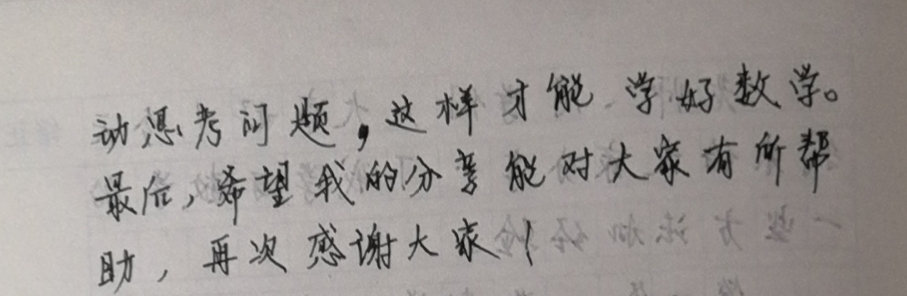 动思考问题，这样才能学好数学。
最后，希望我的分享能对大家有所帮
助，再次感谢大家！